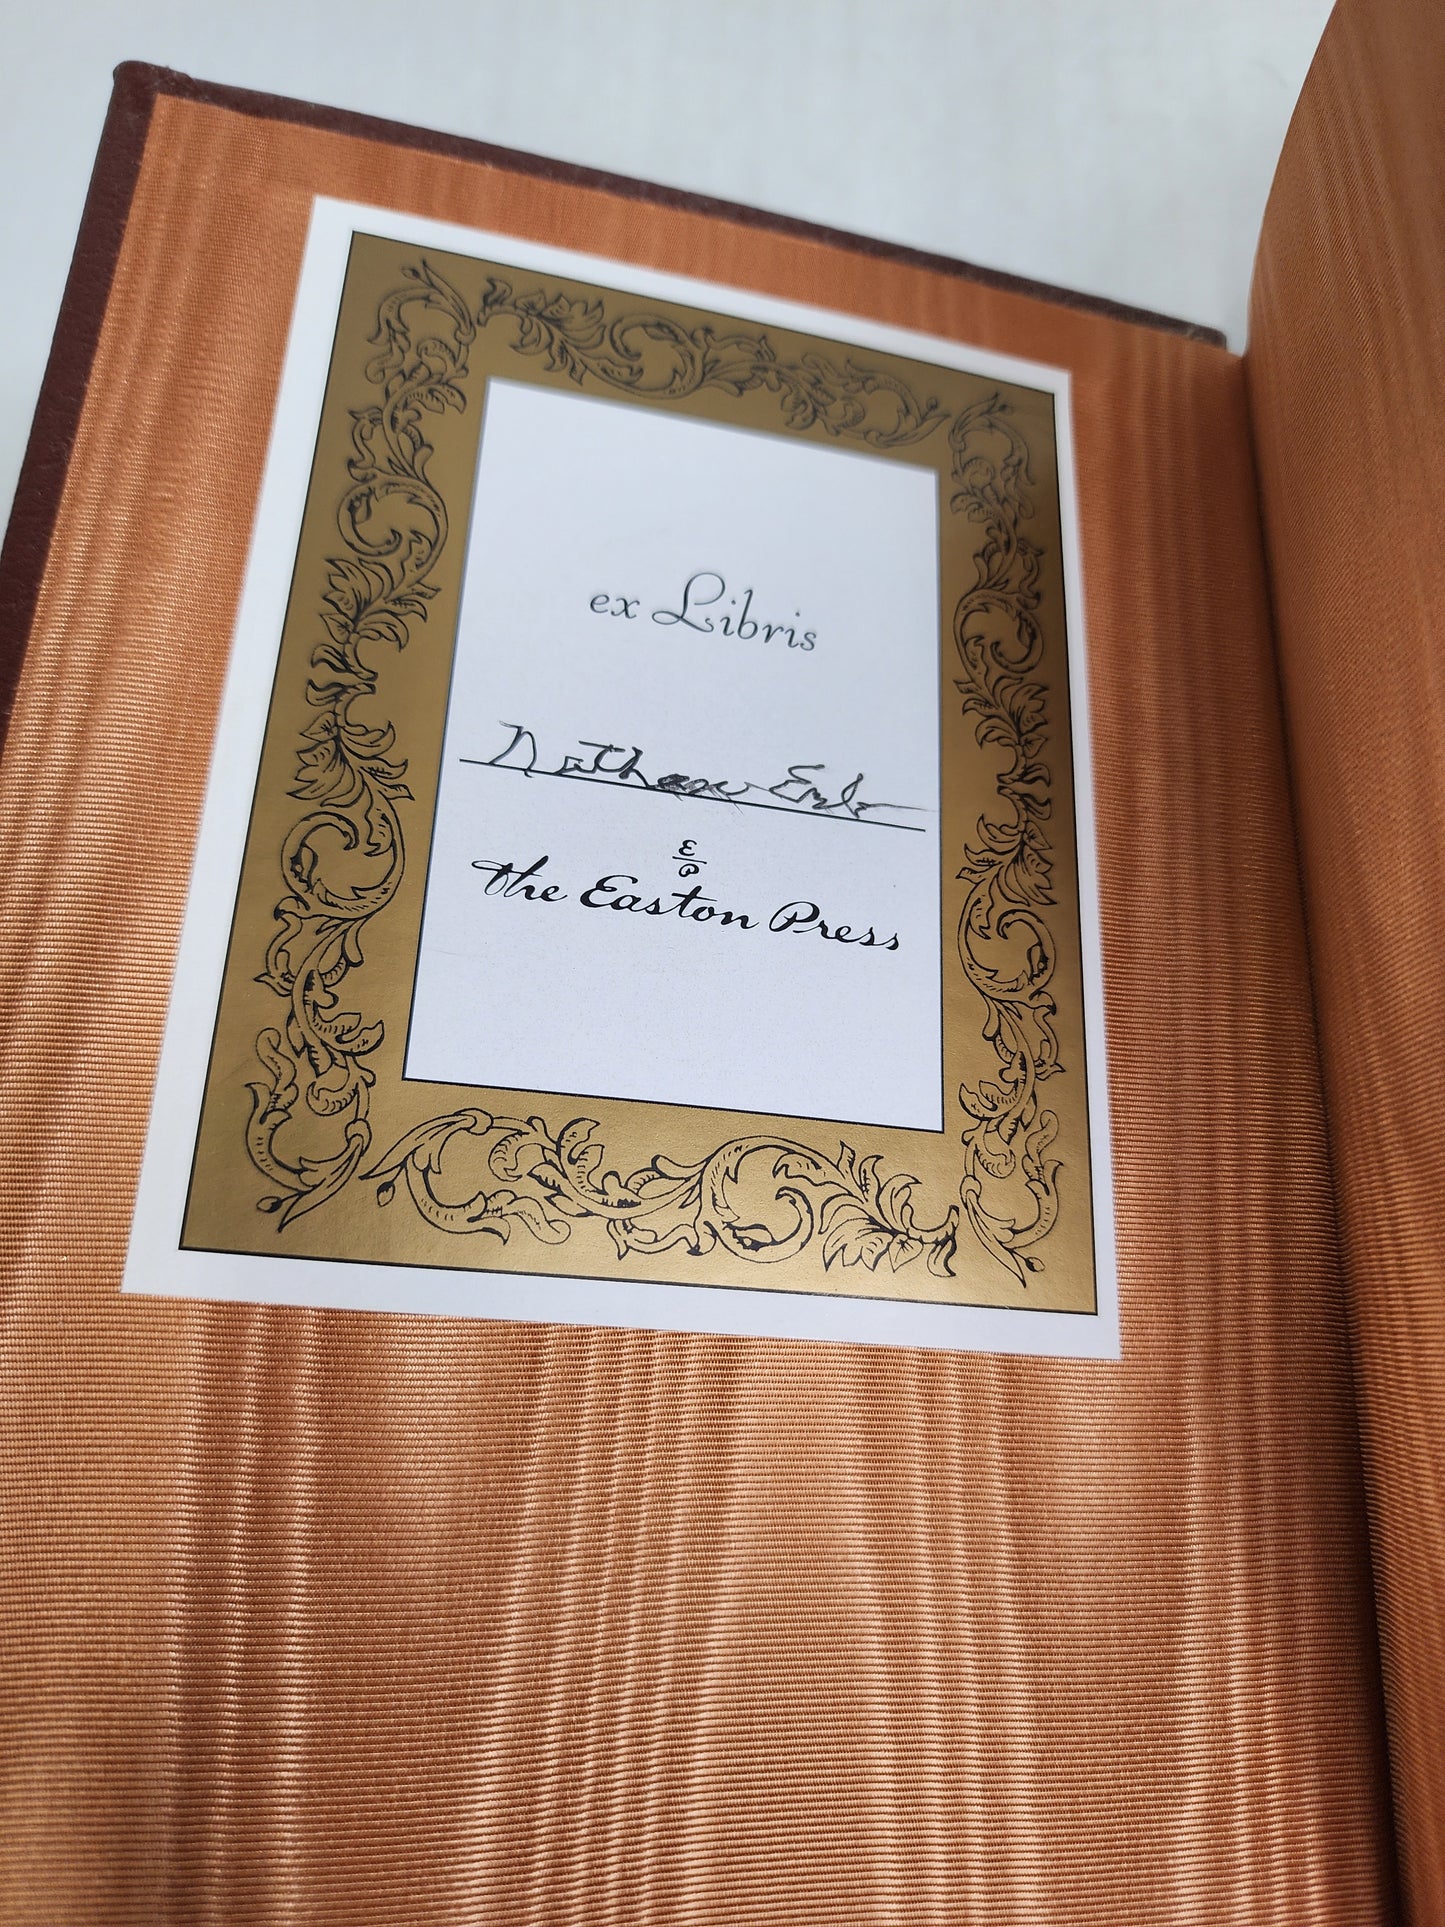 ex Libris
Nathan Earle
E
P
The Easton Press